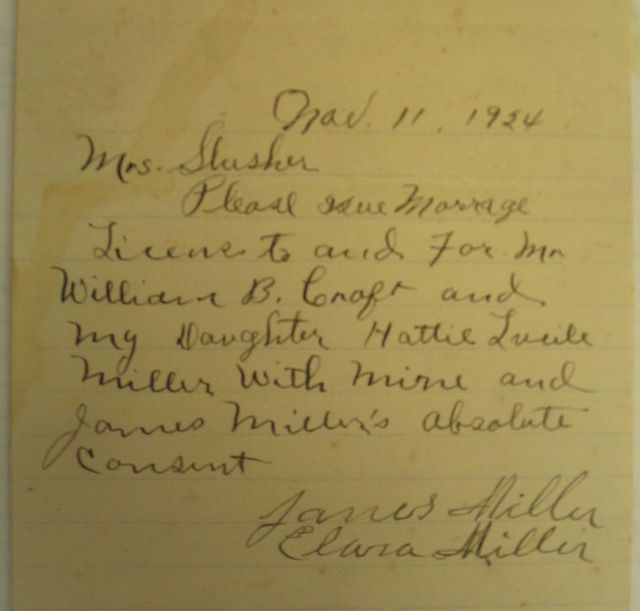 Nov. 11, 1924
Mrs. Slusher
Please issue Marrage
License to and For Mr
William B. Croft and
my Daughter Hattie Lucile
Miller With mine and
James Miller's absolute
Consent
James Miller
Clara Miller